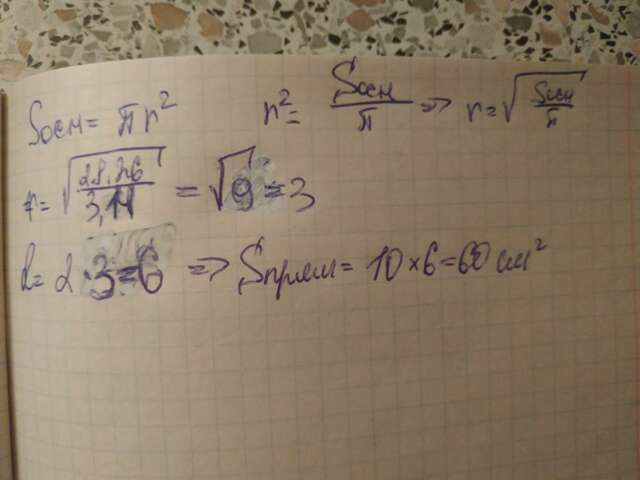 Sосн = πr² r² = Sосн/π => r = √(Sосн/π)
r = √(28.26/3,14) = √9 = 3
d = 2·3=6 => Sпрям = 10×6=60 см²